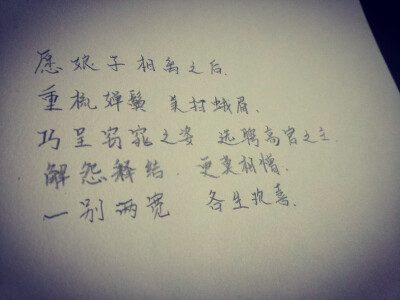 愿娘子相离之后.
重梳婵鬓 美扫蛾眉.
巧呈窈窕之姿 选聘高官之主.
解怨释结. 更莫相憎.
一别两宽 各生欢喜.